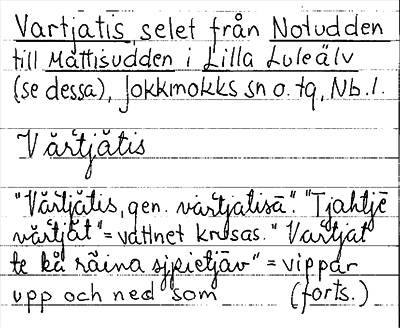 Vartjatis, selet från Noludden
till Mattisudden i Lilla Luleälv
(se dessa), Jokkmokks sn o. tg, Nb. l.
Vărtjătis
"Vărtjătis, gen. vărtjatisā". "Tjahtjē
vărtjăt" = vattnet krusas. "Vartjat
te kă răina sjpietjāv" = vippar
upp och ned som (forts.)